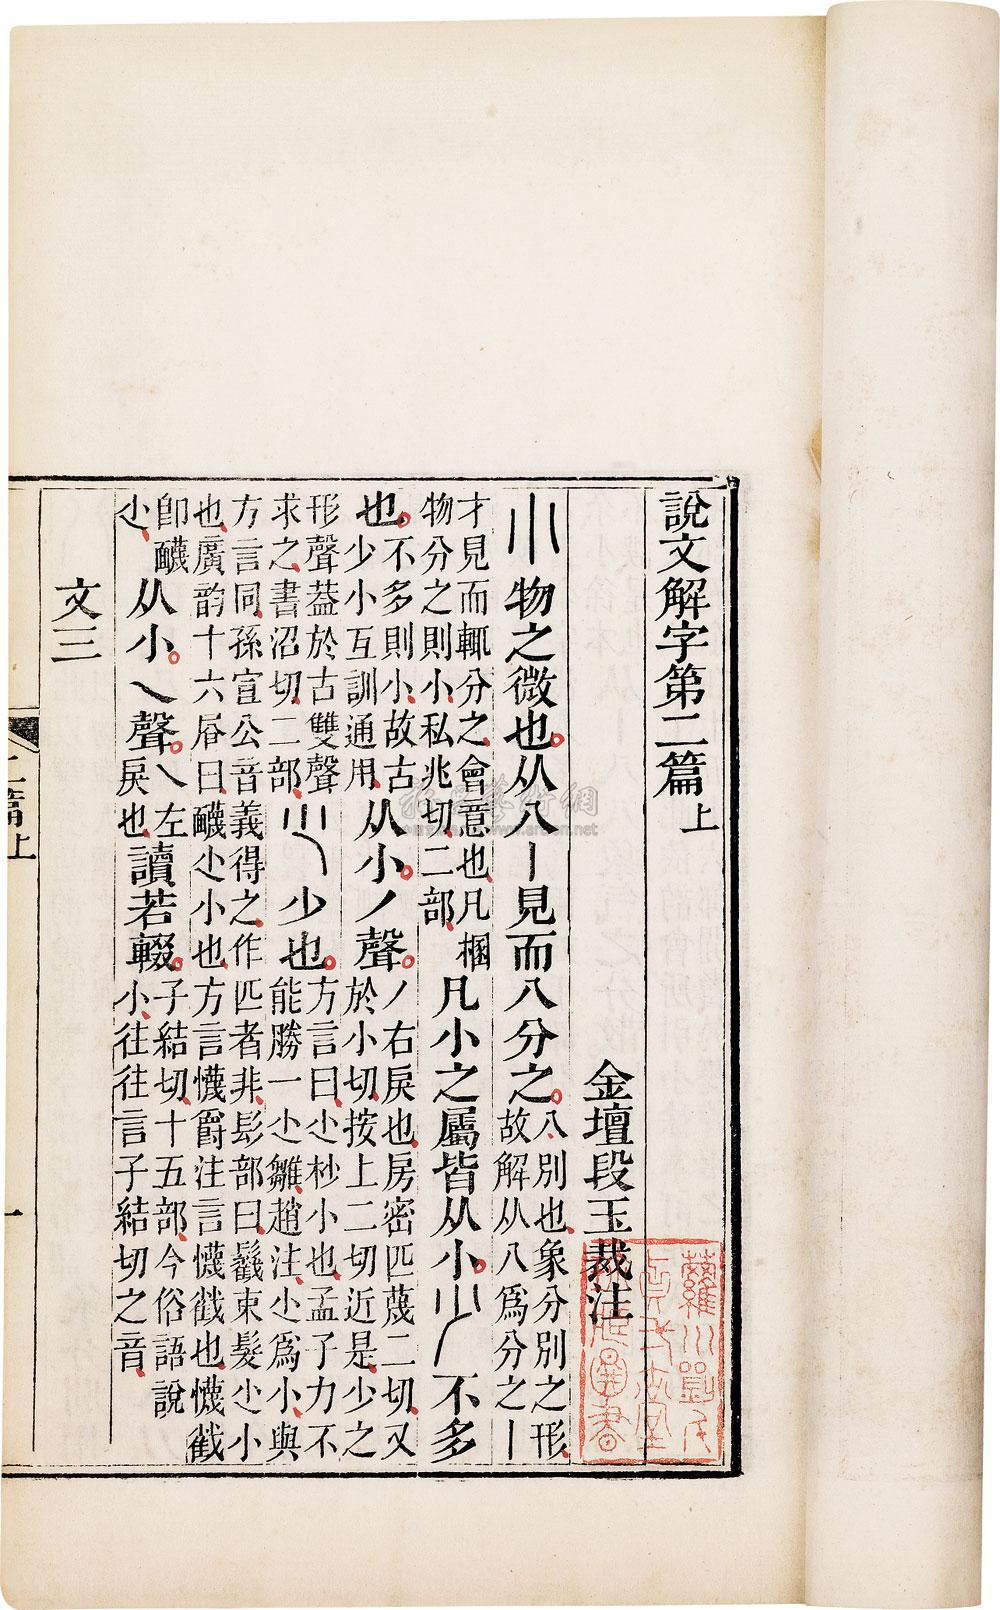 說文解字第二篇上
金壇段玉裁注
小 物之微也从八丨見而八分之 八別也象分別之形
故解从八爲分之丨
才見而輒分之會意也凡
物分之則小私兆切二部 凡小之屬皆从小 少 不多
也 不多則小故古
少小互訓通用 从小丿聲 丿右戾也房密匹蔑二切又
於小切按上二切近是少之
形聲葢於古雙聲
求之書沼切二部 尐 少也 方言曰尐杪小也孟子力不
能勝一尐雛趙注尐爲小與
方言同孫宣公音義得之作匹者非髟部曰束髮尐小
也廣韵十六屑曰尐小也方言懱爵注言懱截也懱截
卽
尐 从小乀聲 乀左
戾也 讀若輟 子結切十五部今俗語說
小往往言子結切之音
文三
二篇上
一
蘿川劉氏
圖書
雅昌藝術網